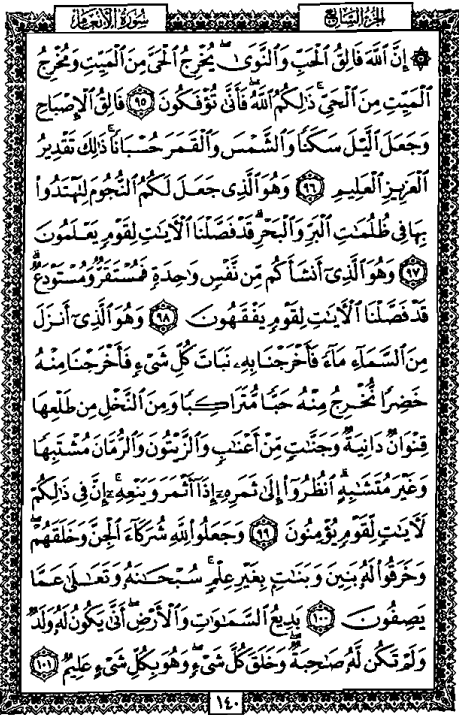 الجزء السابع
سورة الأنعام
۞ إِنَّ ٱللَّهَ فَالِقُ ٱلْحَبِّ وَٱلنَّوَىٰ ۖ يُخْرِجُ ٱلْحَىَّ مِنَ ٱلْمَيِّتِ وَمُخْرِجُ
ٱلْمَيِّتِ مِنَ ٱلْحَىِّ ۚ ذَٰلِكُمُ ٱللَّهُ ۖ فَأَنَّىٰ تُؤْفَكُونَ ٩٥ فَالِقُ ٱلْإِصْبَاحِ
وَجَعَلَ ٱلَّيْلَ سَكَنًا وَٱلشَّمْسَ وَٱلْقَمَرَ حُسْبَانًا ۚ ذَٰلِكَ تَقْدِيرُ
ٱلْعَزِيزِ ٱلْعَلِيمِ ٩٦ وَهُوَ ٱلَّذِى جَعَلَ لَكُمُ ٱلنُّجُومَ لِتَهْتَدُوا۟
بِهَا فِى ظُلُمَـٰتِ ٱلْبَرِّ وَٱلْبَحْرِ ۗ قَدْ فَصَّلْنَا ٱلْـَٔايَـٰتِ لِقَوْمٍ يَعْلَمُونَ
٩٧ وَهُوَ ٱلَّذِىٓ أَنشَأَكُم مِّن نَّفْسٍ وَٰحِدَةٍ فَمُسْتَقَرٌّ وَمُسْتَوْدَعٌ ۗ
قَدْ فَصَّلْنَا ٱلْـَٔايَـٰتِ لِقَوْمٍ يَفْقَهُونَ ٩٨ وَهُوَ ٱلَّذِىٓ أَنزَلَ
مِنَ ٱلسَّمَآءِ مَآءً فَأَخْرَجْنَا بِهِۦ نَبَاتَ كُلِّ شَىْءٍ فَأَخْرَجْنَا مِنْهُ
خَضِرًا نُّخْرِجُ مِنْهُ حَبًّا مُّتَرَاكِبًا وَمِنَ ٱلنَّخْلِ مِن طَلْعِهَا
قِنْوَانٌ دَانِيَةٌ وَجَنَّـٰتٍ مِّنْ أَعْنَابٍ وَٱلزَّيْتُونَ وَٱلرُّمَّانَ مُشْتَبِهًا
وَغَيْرَ مُتَشَـٰبِهٍ ۗ ٱنظُرُوٓا۟ إِلَىٰ ثَمَرِهِۦٓ إِذَآ أَثْمَرَ وَيَنْعِهِۦٓ ۚ إِنَّ فِى ذَٰلِكُمْ
لَـَٔايَـٰتٍ لِّقَوْمٍ يُؤْمِنُونَ ٩٩ وَجَعَلُوا۟ لِلَّهِ شُرَكَآءَ ٱلْجِنَّ وَخَلَقَهُمْ ۖ
وَخَرَقُوا۟ لَهُۥ بَنِينَ وَبَنَـٰتٍۭ بِغَيْرِ عِلْمٍ ۚ سُبْحَـٰنَهُۥ وَتَعَـٰلَىٰ عَمَّا
يَصِفُونَ ١٠٠ بَدِيعُ ٱلسَّمَـٰوَٰتِ وَٱلْأَرْضِ ۖ أَنَّىٰ يَكُونُ لَهُۥ وَلَدٌ
وَلَمْ تَكُن لَّهُۥ صَـٰحِبَةٌ ۖ وَخَلَقَ كُلَّ شَىْءٍ ۖ وَهُوَ بِكُلِّ شَىْءٍ عَلِيمٌ ١٠١
١٤٠